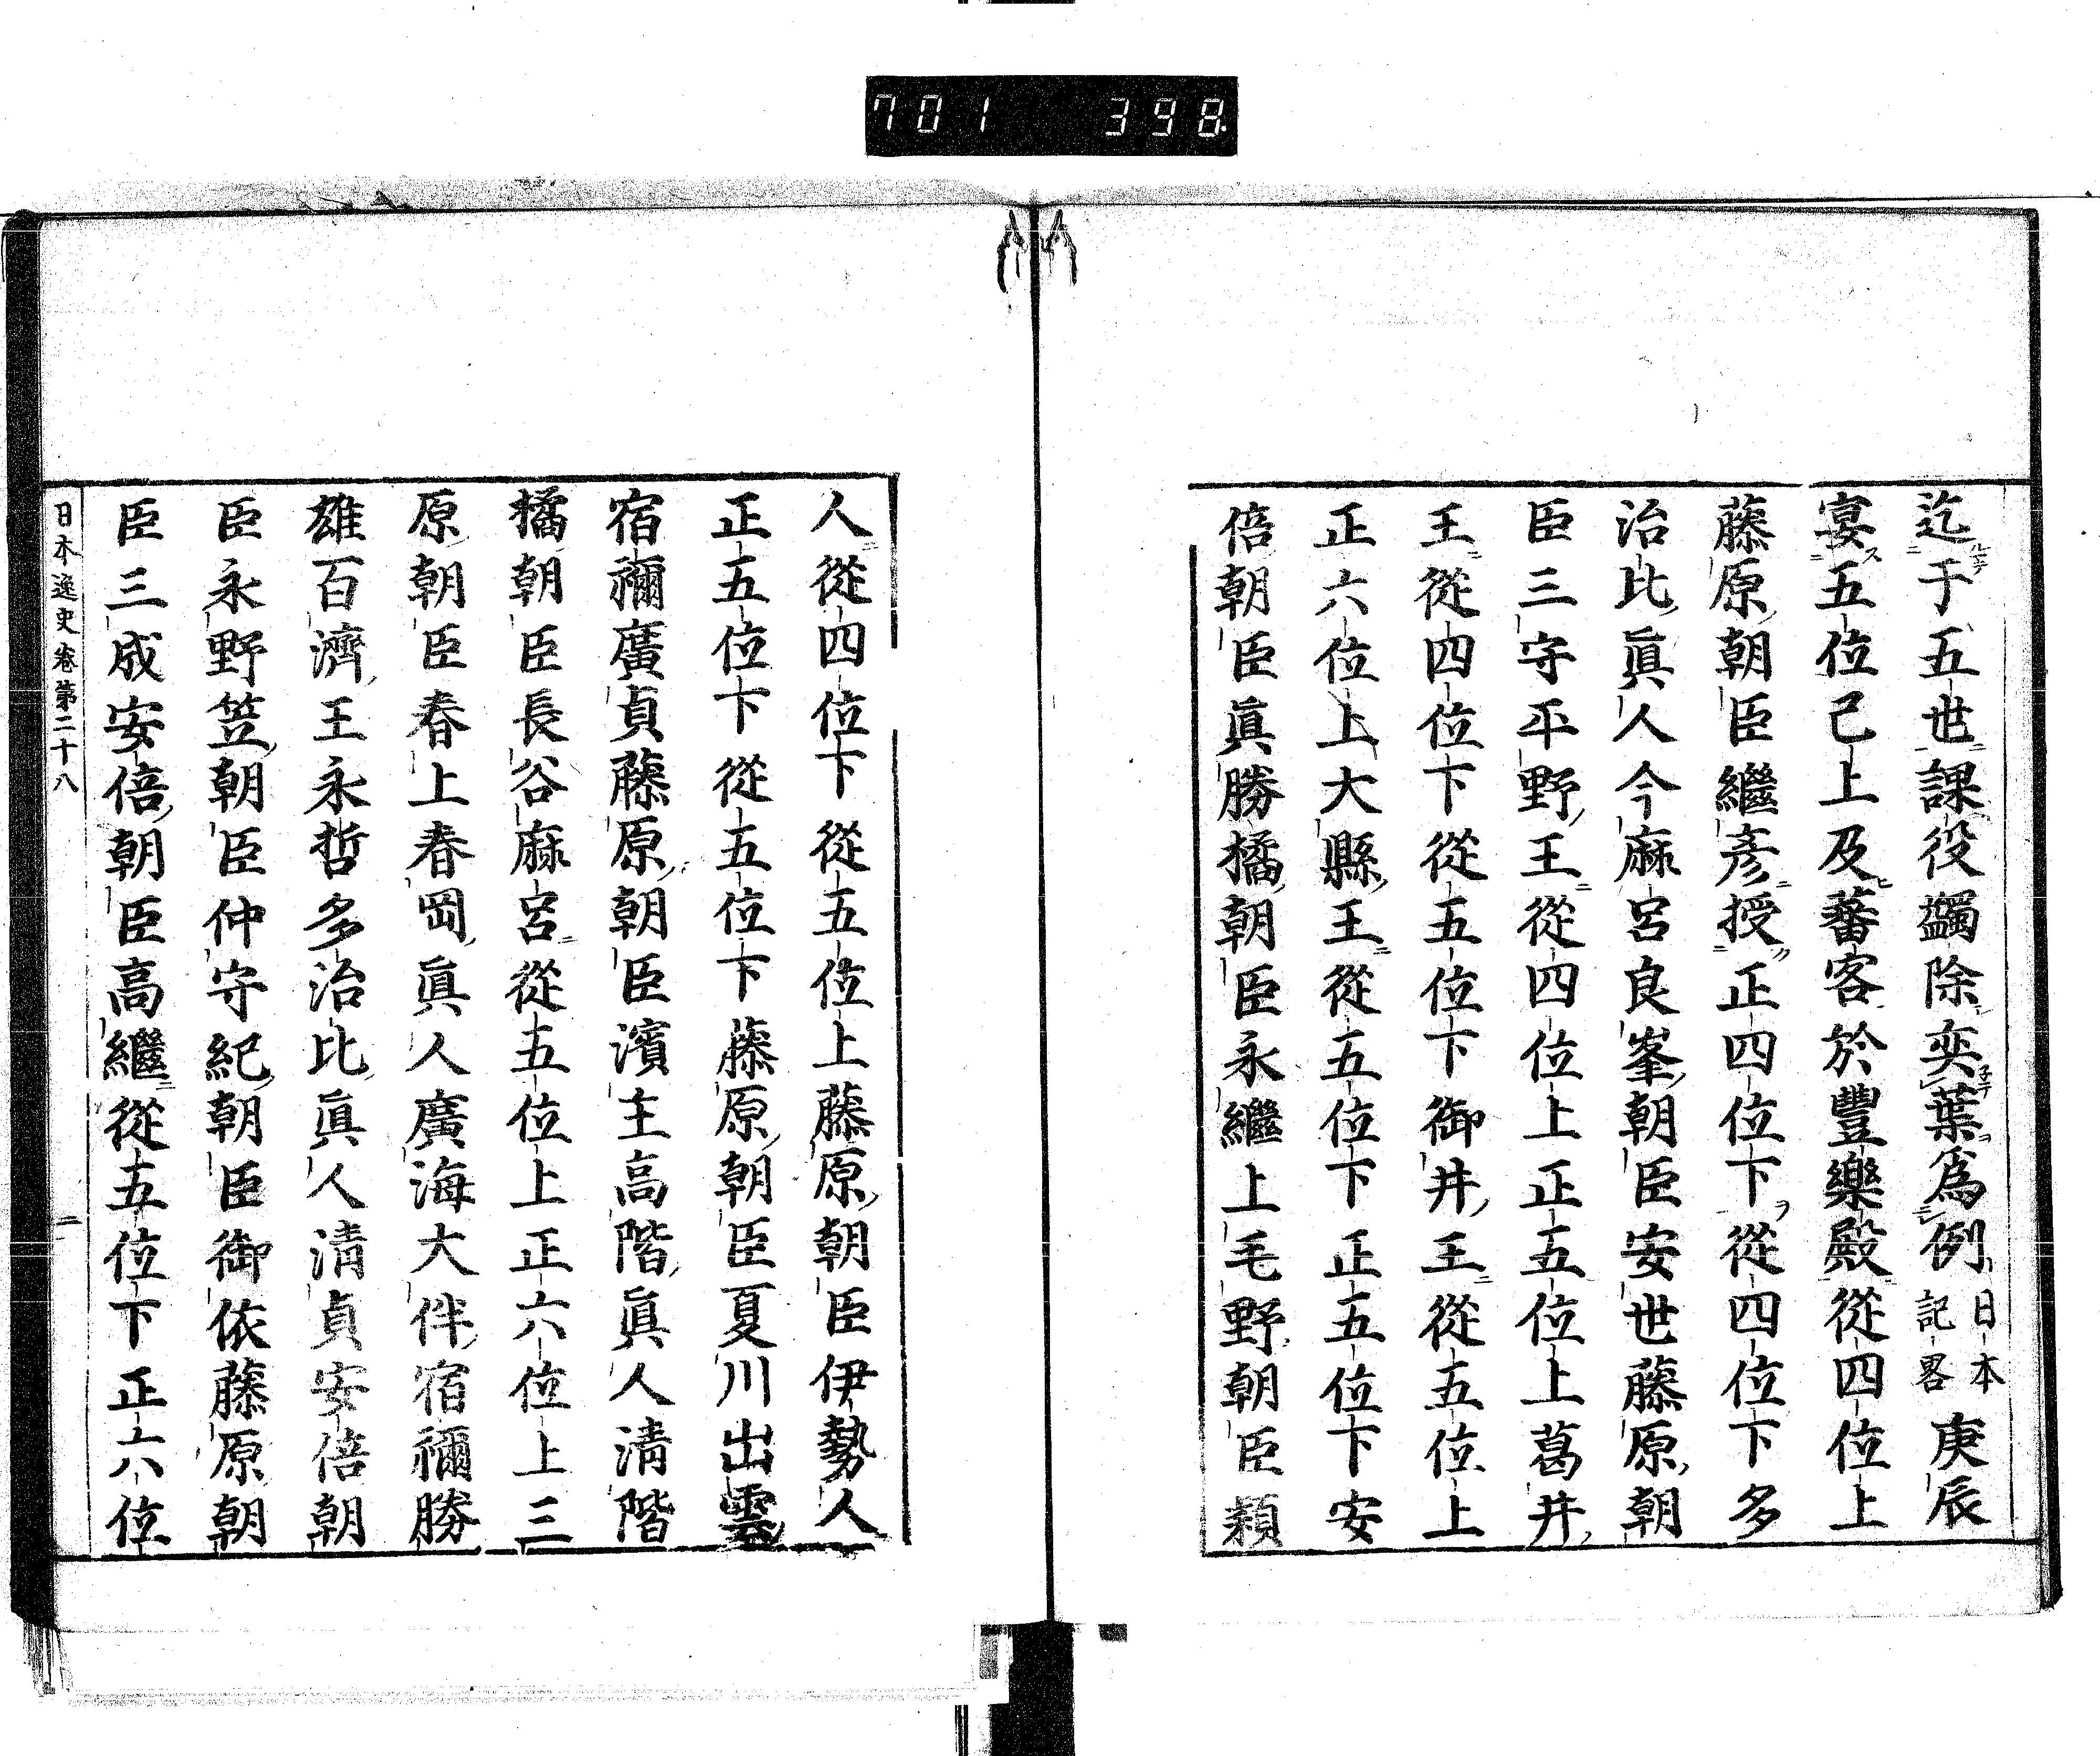 701 398
迄于五世課役蠲除奕葉爲例日本記畧庚辰
宴五位已上及蕃客於豐樂殿從四位上
藤原朝臣繼彥授正四位下從四位下多
治比眞人今麻呂良峯朝臣安世藤原朝
臣三守平野王從四位上正五位上葛井
王從四位下從五位下御井王從五位上
正六位上大縣王從五位下正五位下安
倍朝臣眞勝橘朝臣永繼上毛野朝臣穎
人從四位下從五位上藤原朝臣伊勢人
正五位下從五位下藤原朝臣夏川出雲
宿禰廣貞藤原朝臣濱主高階眞人淸階
橘朝臣長谷麻呂從五位上正六位上三
原朝臣春上春岡眞人廣海大伴宿禰勝
雄百濟王永哲多治比眞人淸貞安倍朝
臣永野笠朝臣仲守紀朝臣御依藤原朝
臣三成安倍朝臣高繼從五位下正六位
日本逸史卷第二十八 二